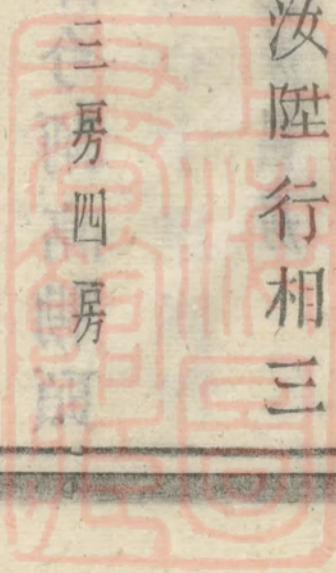 汝陞行相三
三房四房